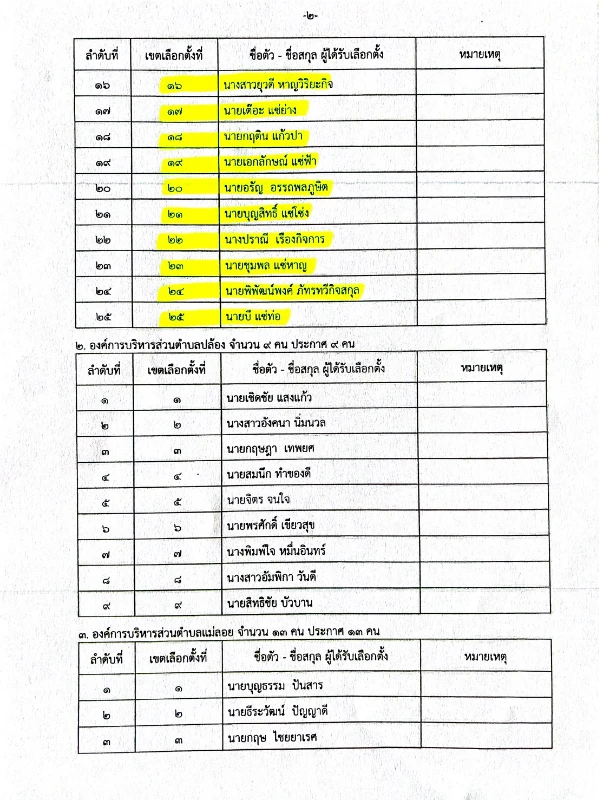 -๒-
ลำดับที่ เขตเลือกตั้งที่ ชื่อตัว - ชื่อสกุล ผู้ได้รับเลือกตั้ง หมายเหตุ
๑๖ ๑๖ นางสาวยุวดี หาญวิริยะกิจ
๑๗ ๑๗ นายเต๊อะ แซ่ย่าง
๑๘ ๑๘ นายกฤติน แก้วปา
๑๙ ๑๙ นายเอกลักษณ์ แซ่ฟ้า
๒๐ ๒๐ นายอรัญ อรรถพลภูษิต
๒๑ ๒๑ นายบุญสิทธิ์ แซ่โซ่ง
๒๒ ๒๒ นางปราณี เรืองกิจการ
๒๓ ๒๓ นายชุมพล แซ่หาญ
๒๔ ๒๔ นายพิพัฒน์พงศ์ ภัทรทวีกิจสกุล
๒๕ ๒๕ นายบี แซ่ท่อ
๒. องค์การบริหารส่วนตำบลปล้อง จำนวน ๙ คน ประกาศ ๙ คน
ลำดับที่ เขตเลือกตั้งที่ ชื่อตัว - ชื่อสกุล ผู้ได้รับเลือกตั้ง หมายเหตุ
๑ ๑ นายเชิดชัย แสงแก้ว
๒ ๒ นางสาวอังคนา นิ่มนวล
๓ ๓ นายกฤษฎา เทพยศ
๔ ๔ นายสมนึก ทำของดี
๕ ๕ นายจิตร จนใจ
๖ ๖ นายพรศักดิ์ เขียวสุข
๗ ๗ นางพิมพ์ใจ หมื่นอินทร์
๘ ๘ นางสาวอัมพิกา วันดี
๙ ๙ นายสิทธิชัย บัวบาน
๓. องค์การบริหารส่วนตำบลแม่ลอย จำนวน ๑๓ คน ประกาศ ๑๓ คน
ลำดับที่ เขตเลือกตั้งที่ ชื่อตัว - ชื่อสกุล ผู้ได้รับเลือกตั้ง หมายเหตุ
๑ ๑ นายบุญธรรม ปันสาร
๒ ๒ นายธีระวัฒน์ ปัญญาดี
๓ ๓ นายกฤษ ไชยยาเรศ